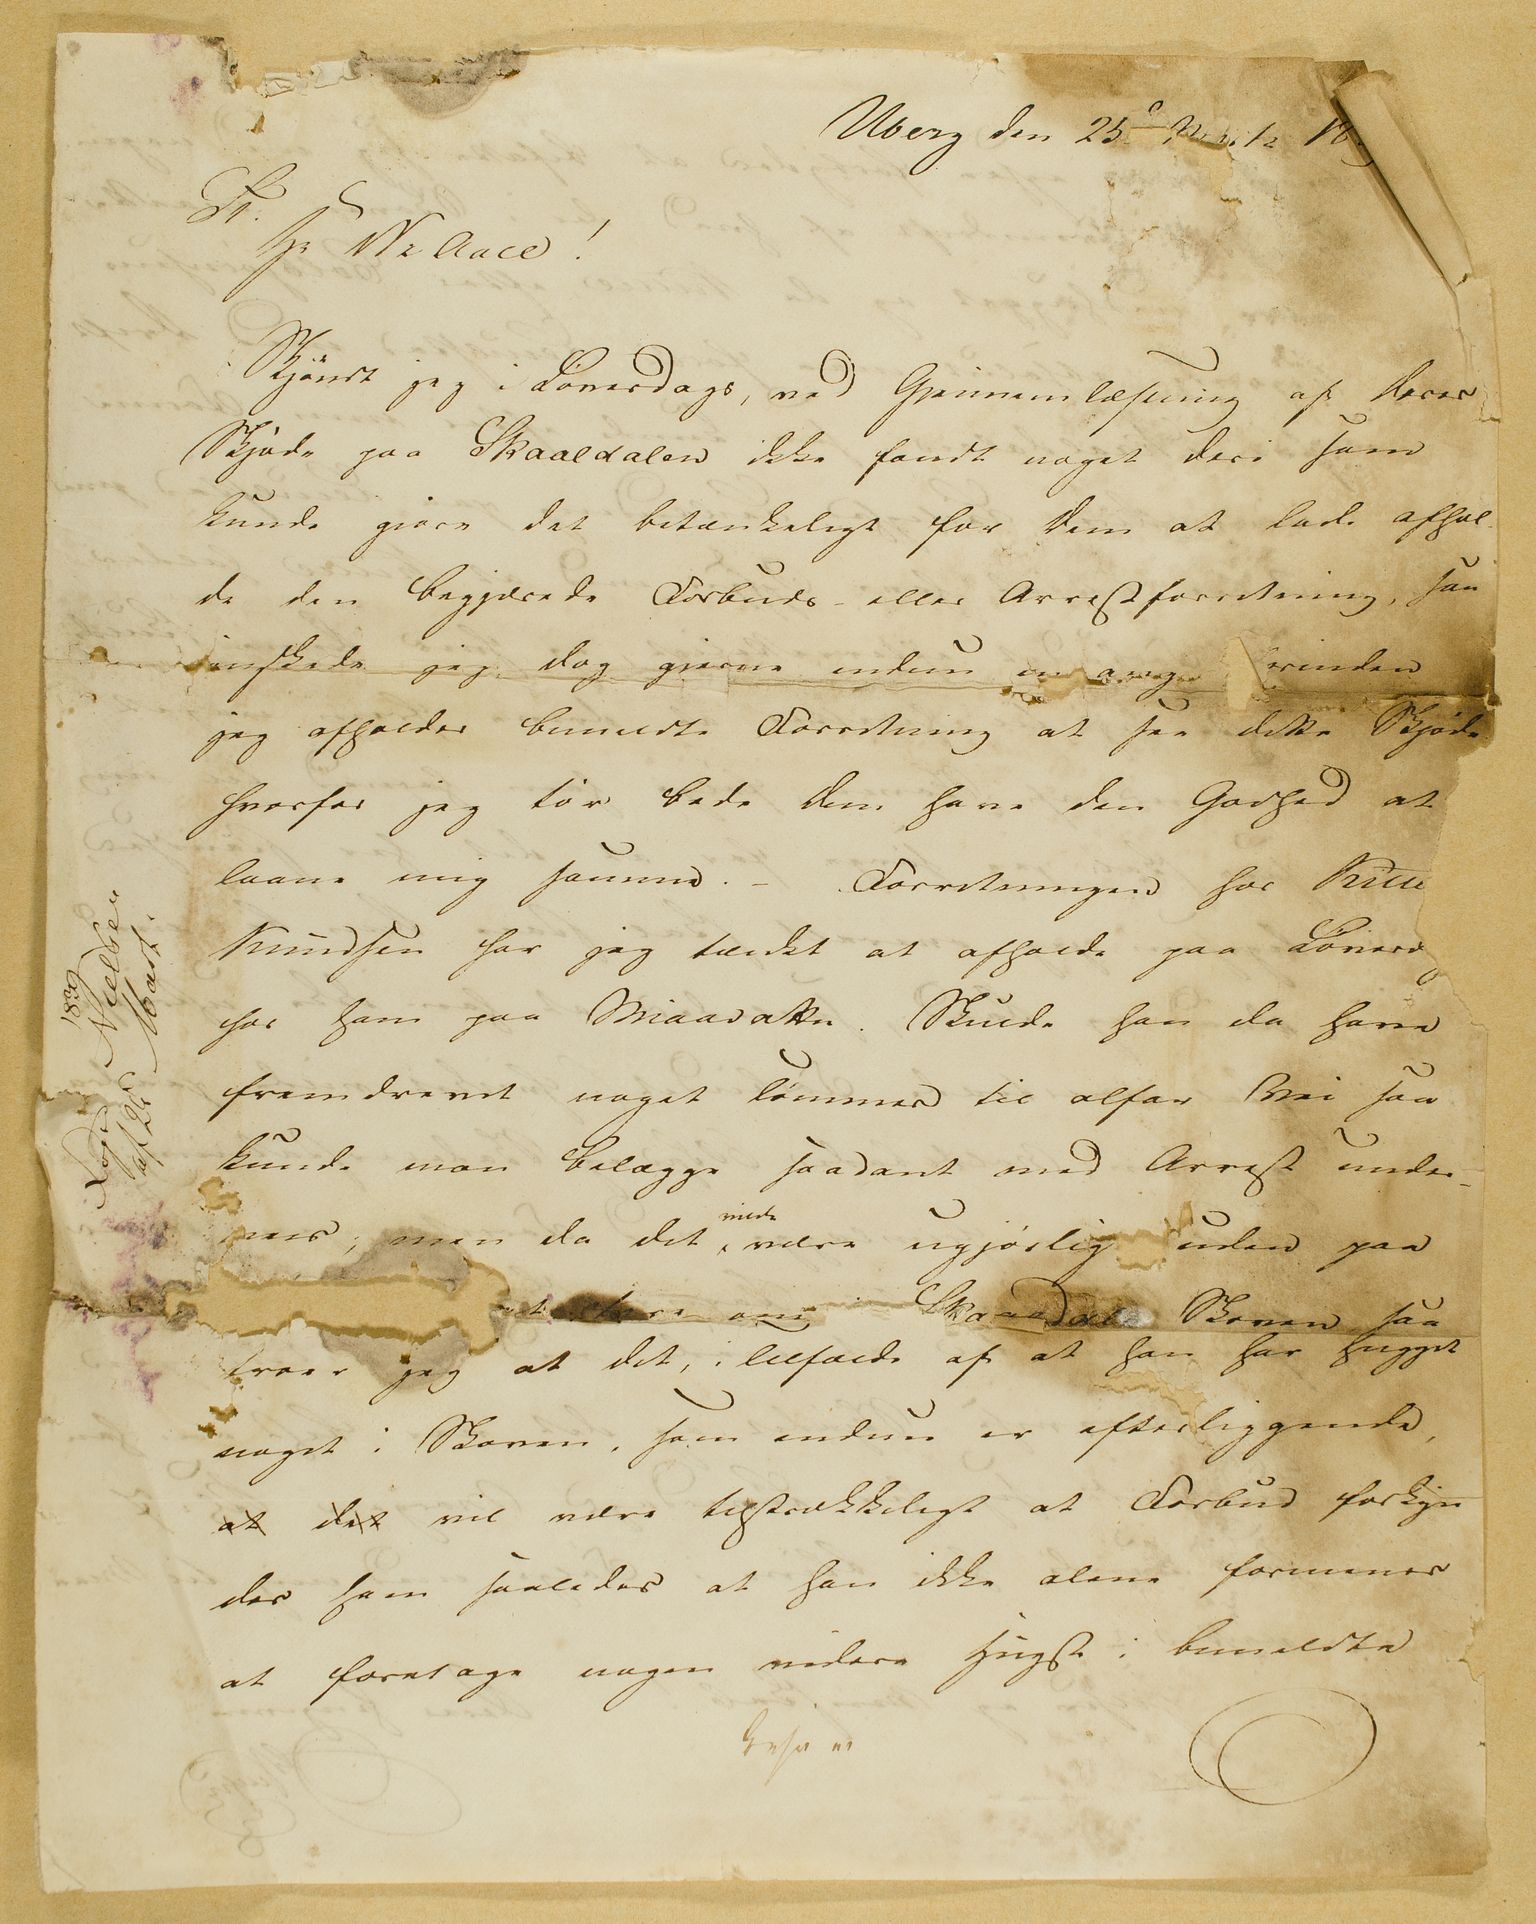 Uberg den 25de Marts 18
Hr. N: Aall!
Skjöndt jeg i Löverdags, ved Gjennemlæsning af Deres
Skjöde paa Skaaldalen ikke fandt noget deri som
kunde giøre det betænkeligt for Dem at lade afhol-
de den begjærede Forbuds- eller Arrestforretning, saa
önskede jeg dog gjerne endnu en gang forinden
jeg afholder bemeldte Forretning at see dette Skjöde
hvorfor jeg tör bede Dem have den Godhed at
laane mig samme. – Forretningen hos
Knudsen har jeg tænkt at afholde paa Löverd
hos ham paa Skulde han da have
fremdrevet noget Tömmer til alfar Vei saa
kunde man belægge saadant med Arrest under-
veis; men da det vilde være ugjörlig uden paa
Skaaldals Skoven saa
troer jeg at det, i Tilfælde af at han har hugget
noget i Skoven, som endnu er efterliggende,
at det vil være tilstrækkeligt at Forbud forkyn
des ham saaledes at han ikke alene formenes
at foretage nogen videre Hugst i bemeldte
1839
Nielsen
25de Marts.